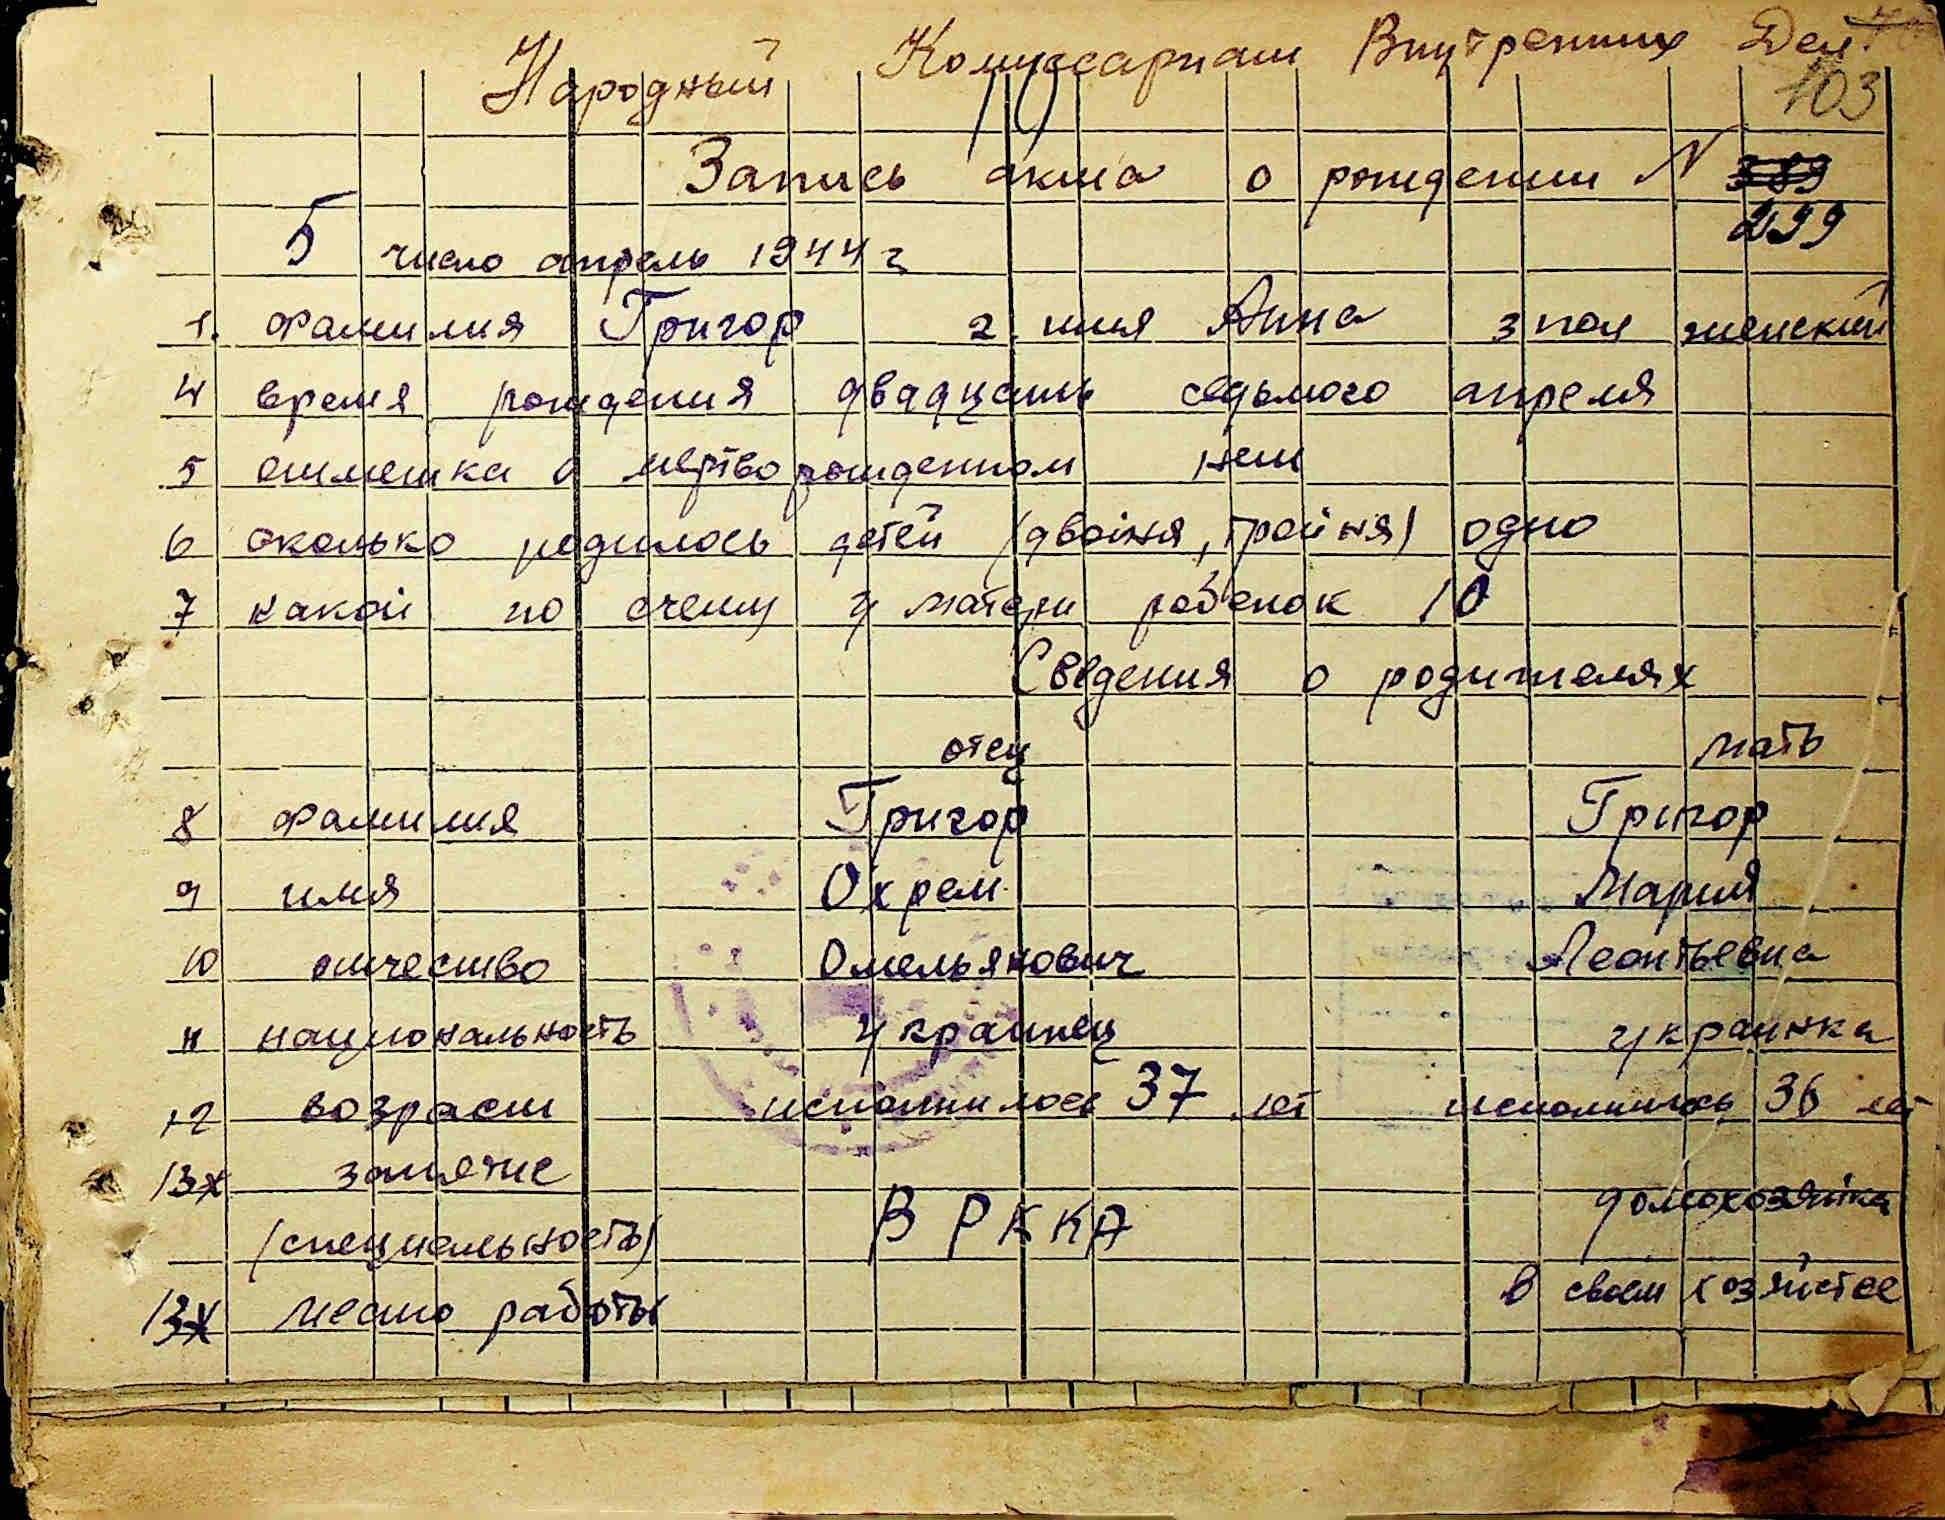 Народный Комиссариат Внутренних Дел
103
Запись акта о рождении N 389
299
5 число апрель 1944 г
1. фамилия Григор 2. имя Анна 3 пол женский
4 время рождения двадцать седьмого апреля
5 отметка о мертворожденном нет
6 сколько родилось детей (двойня, тройня) одно
7 какой по счету у матери ребенок 10
Сведения о родителях
отец мать
8 фамилия Григор Григор
9 имя Охрем Мария
10 отчество Омельянович Леонтьевна
11 национальность украинец украинка
12 возраст исполнилось 37 лет исполнилось 36 лет
13x занятие
(специальность) В РККА домохозяйка
13x место работы в своем хозяйстве